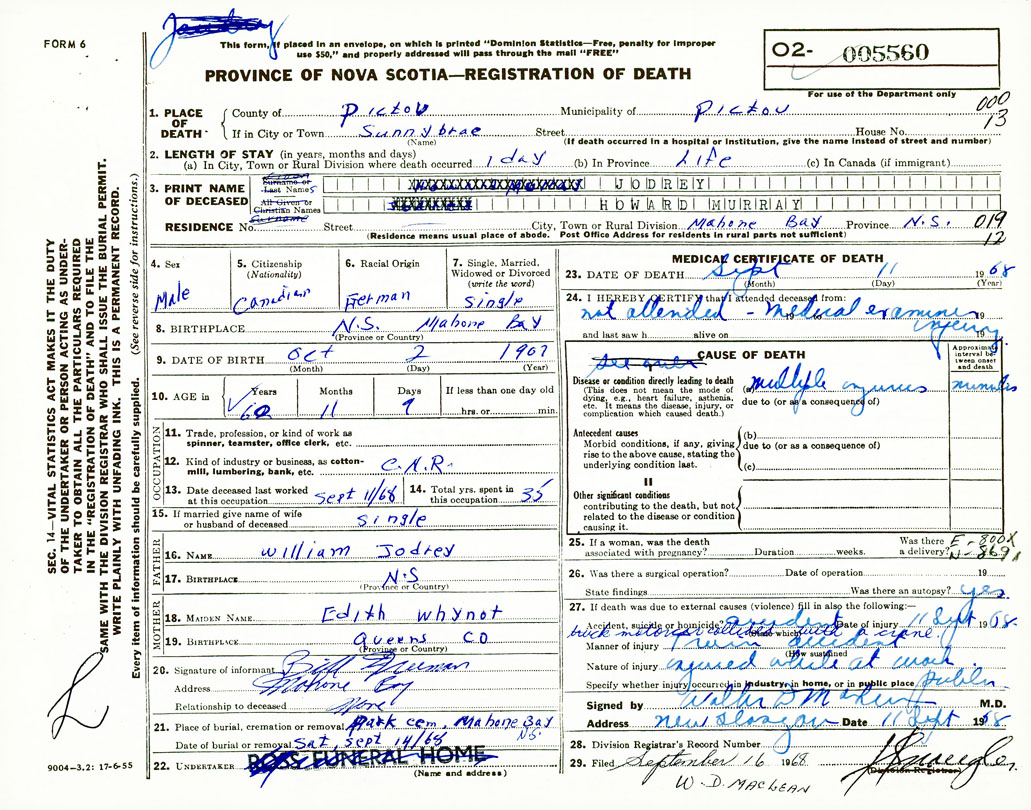 FORM 6
This form, if placed in an envelope, on which is printed "Dominion Statistics—Free, penalty for improper
use $50," and properly addressed will pass through the mail "FREE"
PROVINCE OF NOVA SCOTIA—REGISTRATION OF DEATH
O2- 005560
For use of the Department only
000
13
1. PLACE OF DEATH
County of Pictou Municipality of Pictou
If in City or Town Sunnybrae Street House No.
(Name) (If death occurred in a hospital or institution, give the name instead of street and number)
2. LENGTH OF STAY (in years, months and days)
(a) In City, Town or Rural Division where death occurred 1 day (b) In Province Life (c) In Canada (if immigrant)
3. PRINT NAME OF DECEASED
Surname or Last Names JODREY
All Given or Christian Names HOWARD MURRAY
RESIDENCE No. Street City, Town or Rural Division Mahone Bay Province N.S. 019
(Residence means usual place of abode. Post Office Address for residents in rural parts not sufficient) 12
4. Sex
Male
5. Citizenship
(Nationality)
Canadian
6. Racial Origin
German
7. Single, Married,
Widowed or Divorced
(write the word)
Single
8. BIRTHPLACE N.S. Mahone Bay
(Province or Country)
9. DATE OF BIRTH Oct 2 1907
(Month) (Day) (Year)
10. AGE in
Years Months Days If less than one day old
60 11 9 hrs. or min.
OCCUPATION
11. Trade, profession, or kind of work as
spinner, teamster, office clerk, etc.
12. Kind of industry or business, as cotton-
mill, lumbering, bank, etc. C.N.R.
13. Date deceased last worked
at this occupation Sept 11/68
14. Total yrs. spent in
this occupation 35
15. If married give name of wife
or husband of deceased single
FATHER
16. NAME William Jodrey
17. BIRTHPLACE N.S
(Province or Country)
MOTHER
18. MAIDEN NAME Edith Whynot
19. BIRTHPLACE Queens CO
(Province or Country)
20. Signature of informant Bill
Address Mahone Bay
Relationship to deceased None
21. Place of burial, cremation or removal Park cem, Mahone Bay
N.S.
Date of burial or removal Sat, Sept 14/68
22. UNDERTAKER ROSS FUNERAL HOME
(Name and address)
MEDICAL CERTIFICATE OF DEATH
23. DATE OF DEATH Sept 11 1968
(Month) (Day) (Year)
24. I HEREBY CERTIFY that I attended deceased from:
not attended - Medical examiner 19
and last saw h alive on 19
CAUSE OF DEATH
Approximate interval between onset and death
Disease or condition directly leading to death
(This does not mean the mode of
dying, e.g., heart failure, asthenia,
etc. It means the disease, injury, or
complication which caused death.)
(a) multiple injuries minutes
due to (or as a consequence of)
Antecedent causes
Morbid conditions, if any, giving
rise to the above cause, stating the
underlying condition last.
(b)
due to (or as a consequence of)
(c)
II
Other significant conditions
contributing to the death, but not
related to the disease or condition
causing it.
25. If a woman, was the death
associated with pregnancy? Duration weeks. Was there
a delivery?
E-800X
N-869
26. Was there a surgical operation? Date of operation 19
State findings Was there an autopsy? yes.
27. If death was due to external causes (violence) fill in also the following:—
Accident, suicide or homicide? accident Date of injury 11 Sept 1968.
(State which)
truck motor collided with a crane.
Manner of injury train accident
(How sustained)
Nature of injury injured while at work.
Specify whether injury occurred in industry, in home, or in public place Public
Signed by M.D.
Address New Glasgow Date 11 Sept 1968
28. Division Registrar's Record Number
29. Filed September 16 1968
(Division Registrar)
W-D. MACLEAN
SEC. 14—VITAL STATISTICS ACT MAKES IT THE DUTY
OF THE UNDERTAKER OR PERSON ACTING AS UNDER-
TAKER TO OBTAIN ALL THE PARTICULARS REQUIRED
IN THE "REGISTRATION OF DEATH" AND TO FILE THE
SAME WITH THE DIVISION REGISTRAR WHO SHALL ISSUE THE BURIAL PERMIT.
WRITE PLAINLY WITH UNFADING INK. THIS IS A PERMANENT RECORD.
Every item of information should be carefully supplied. (See reverse side for instructions.)
9004-3.2: 17-6-55